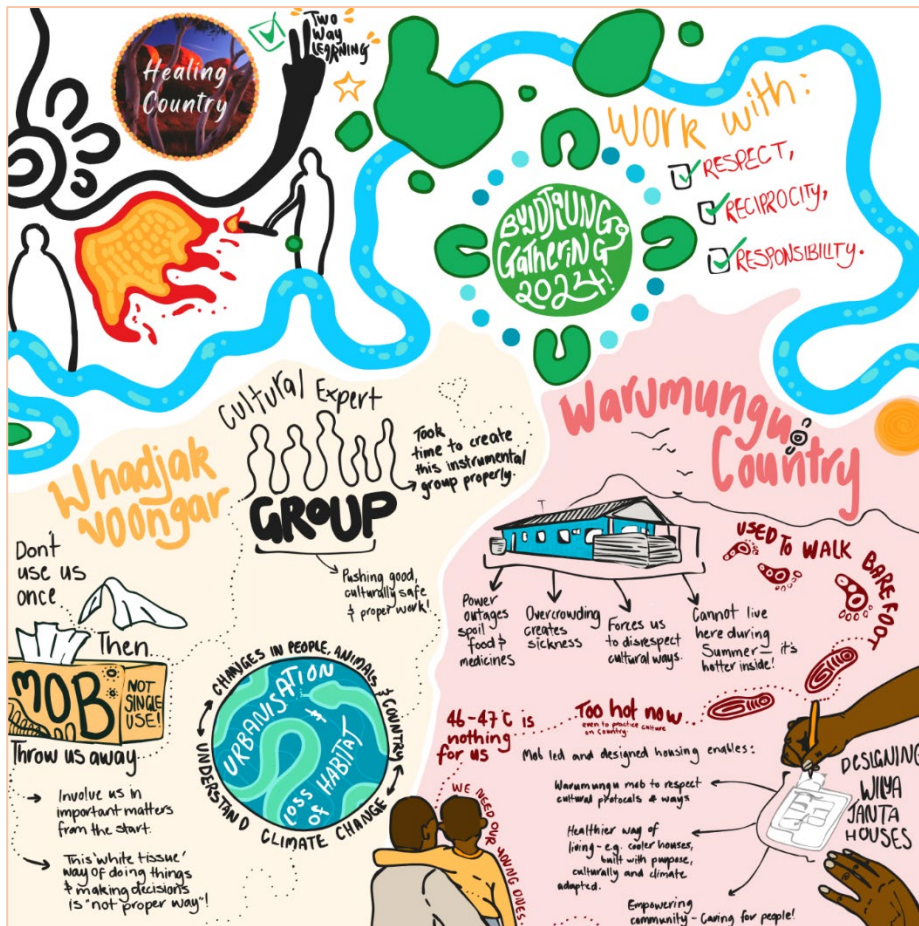 Healing
Country
Two
Way
Learning
Work with:
RESPECT,
RECIPROCITY,
RESPONSIBILITY.
Gathering
2024!
Whadjak
Noongar
Cultural Expert
GROUP
Took
time to create
this instrumental
group properly.
Pushing good,
culturally safe
& proper work!
Don't
use us
once
Then
MOB
NOT
SINGLE
USE!
Throw us away
Involve us in
important matters
from the start.
This 'white tissue'
way of doing things
& making decisions
is "not proper way"!
CHANGES IN PEOPLE, ANIMALS & COUNTRY
URBANISATION
LOSS of HABITAT
UNDERSTAND CLIMATE CHANGE
Warumungu
Country
Power
outages
spoil
food &
medicines
Overcrowding
creates
sickness
Forces us
to disrespect
cultural ways.
Cannot live
here during
Summer – it's
hotter inside!
USED TO WALK BAREFOOT
46-47°C is
nothing
for us
Too hot now
even to practice culture
on Country.
Mob led and designed housing enables:
Warumungu mob to respect
cultural protocols & ways
Healthier way of
living - e.g. cooler houses,
built with purpose,
culturally and climate
adapted.
Empowering
community - Caring for people!
DESIGNING
WILYA
JANTA
HOUSES
WE NEED OUR YOUNG ONES